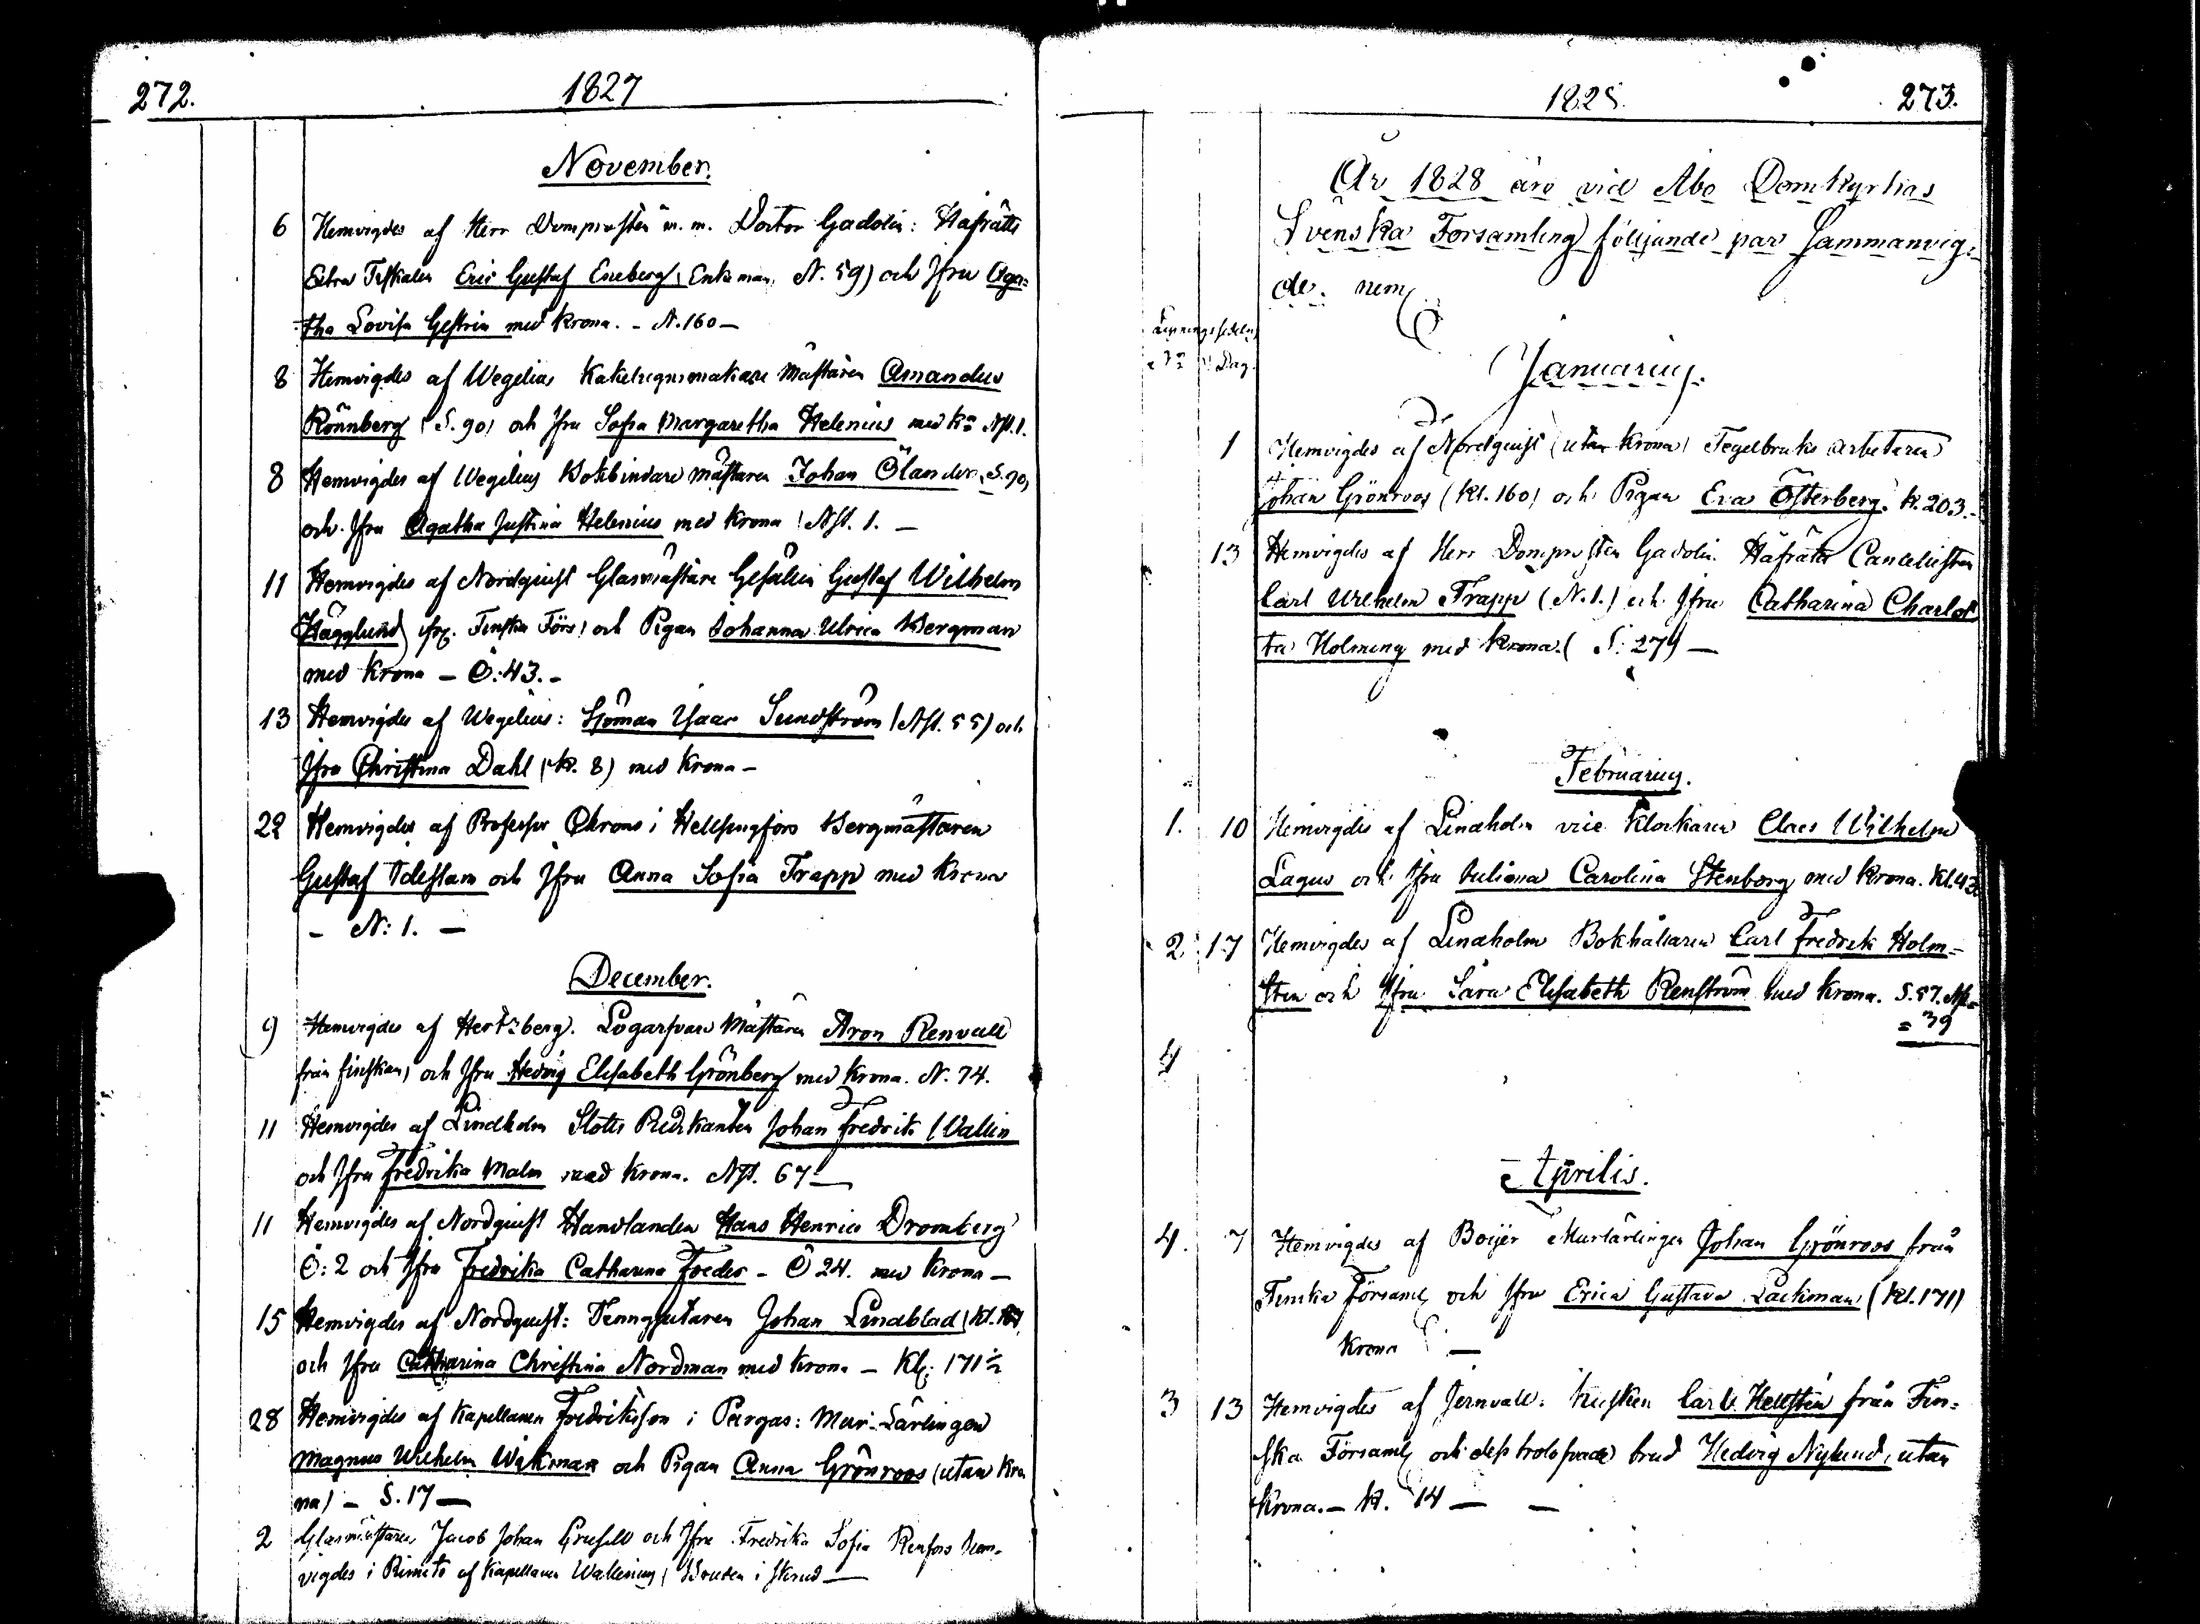 272.
1827
November.
6 Hemvigdes af Herr Domprosten m. m. Doctor Gadolin: Hofrätts
Extra Fiskalen Eric Gustaf Eneberg (Enkeman, N. 59) och Jfru Aga-
tha Lovisa Gestrin med krona. - N. 160 —
8 Hemvigdes af Wegelius Kakelugnsmakare Mästaren Amandus
Rönnberg (S. 90) och Jfru Sofia Margaretha Helenius med kr. Nst. 1.
8 Hemvigdes af Wegelius Bokbindare mästaren Johan Ölander, S. 90,
och Jfru Agatha Justina Helenius med Krona / Nst. 1. —
11 Hemvigdes af Nordquist Glasmästare Gesällen Gustaf Wilhelm
Hägglund frx. Finska Förs! och Pigan Johanna Ulrica Bergman
med Krona — Ö: 43. -
13 Hemvigdes af Wegelius: Sjöman Isaac Sundström (Nst. 55) och
Jfru Christina Dahl (kl. 8) med krona —
22 Hemvigdes af Professor Ohrons i Helsingfors Bergmästaren
Gustaf Idestam och Jfru Anna Sofia Trapp med krona
- N: 1. —
December.
9 Hemvigdes af Hertzberg. Logarfvare Mästaren Aron Renvall
från finskan, och Jfru Hedvig Elisabeth Grönberg med Krona. N. 74.
11 Hemvigdes af Lindholm Slotts Predikanten Johan Fredrik Wallin
och Jfru Fredrika Malm med krona. Nst. 67 —
11 Hemvigdes af Nordquist Handlanden Hans Henric Dromberg
Ö: 2 och Jfru Fredrika Catharina Foeder - Ö 24. med krona —
15 Hemvigdes af Nordquist: Tenngjutaren Johan Lindblad (Kl.
och Jfru Catharina Christina Nordman med krona — Kl: 171 ½
28 Hemvigdes af Kapellanen Fredriksson i Pargas: Mur-Lärlingen
Magnus Wilhelm Wikman och Pigan Anna Grönroos (utan kro
na) — S. 17 —
2 Glasmästaren Jacob Johan Grefell och Jfru Fredrika Sofia Renfors hem-
vigdes i Rimito af Kapellanen Wallenius, Bruden i skrud —
1828.
273.
År 1828 äro vid Åbo Domkyrkas
Svenska Församling följjande par Sammanvig-
de. nem
Lysningssedelns
Nr Dag.
Januarius.
1 Hemvigdes af Nordquist (utan krona) Tegelbruks arbetaren
Johan Grönroos (Kl. 160) och Pigan Eva Österberg. Kl. 203. -
13 Hemvigdes af Herr Domprosten Gadolin Hofrätts Cancelisten
Carl Wilhelm Trapp (N. 1.) och Jfru Catharina Charlot
ta Holming med Krona. (S: 279 —
Februarius.
1. 10 Hemvigdes af Lindholm vice Klockaren Claes Wilhelm
Lagus och Jfru Juliana Carolina Stenborg med krona. Kl. 43
2 17 Hemvigdes af Lindholm Bokhållaren Carl Fredrik Holm-
sten och Jfru Sara Elisabeth Renström med krona. S. 57. Nst.
= 39
4
Aprilis.
4. 7 Hemvigdes af Boijer Murlärlingen Johan Grönroos från
Finska Församl och Jfru Erica Gustava Lackman (Kl. 171)
krona —
3 13 Hemvigdes af Jernvall: kusken Carl Hellsten från Fin-
ska Församl och dess trolofvade brud Hedvig Nylund, utan
krona. — kl. 14 — —